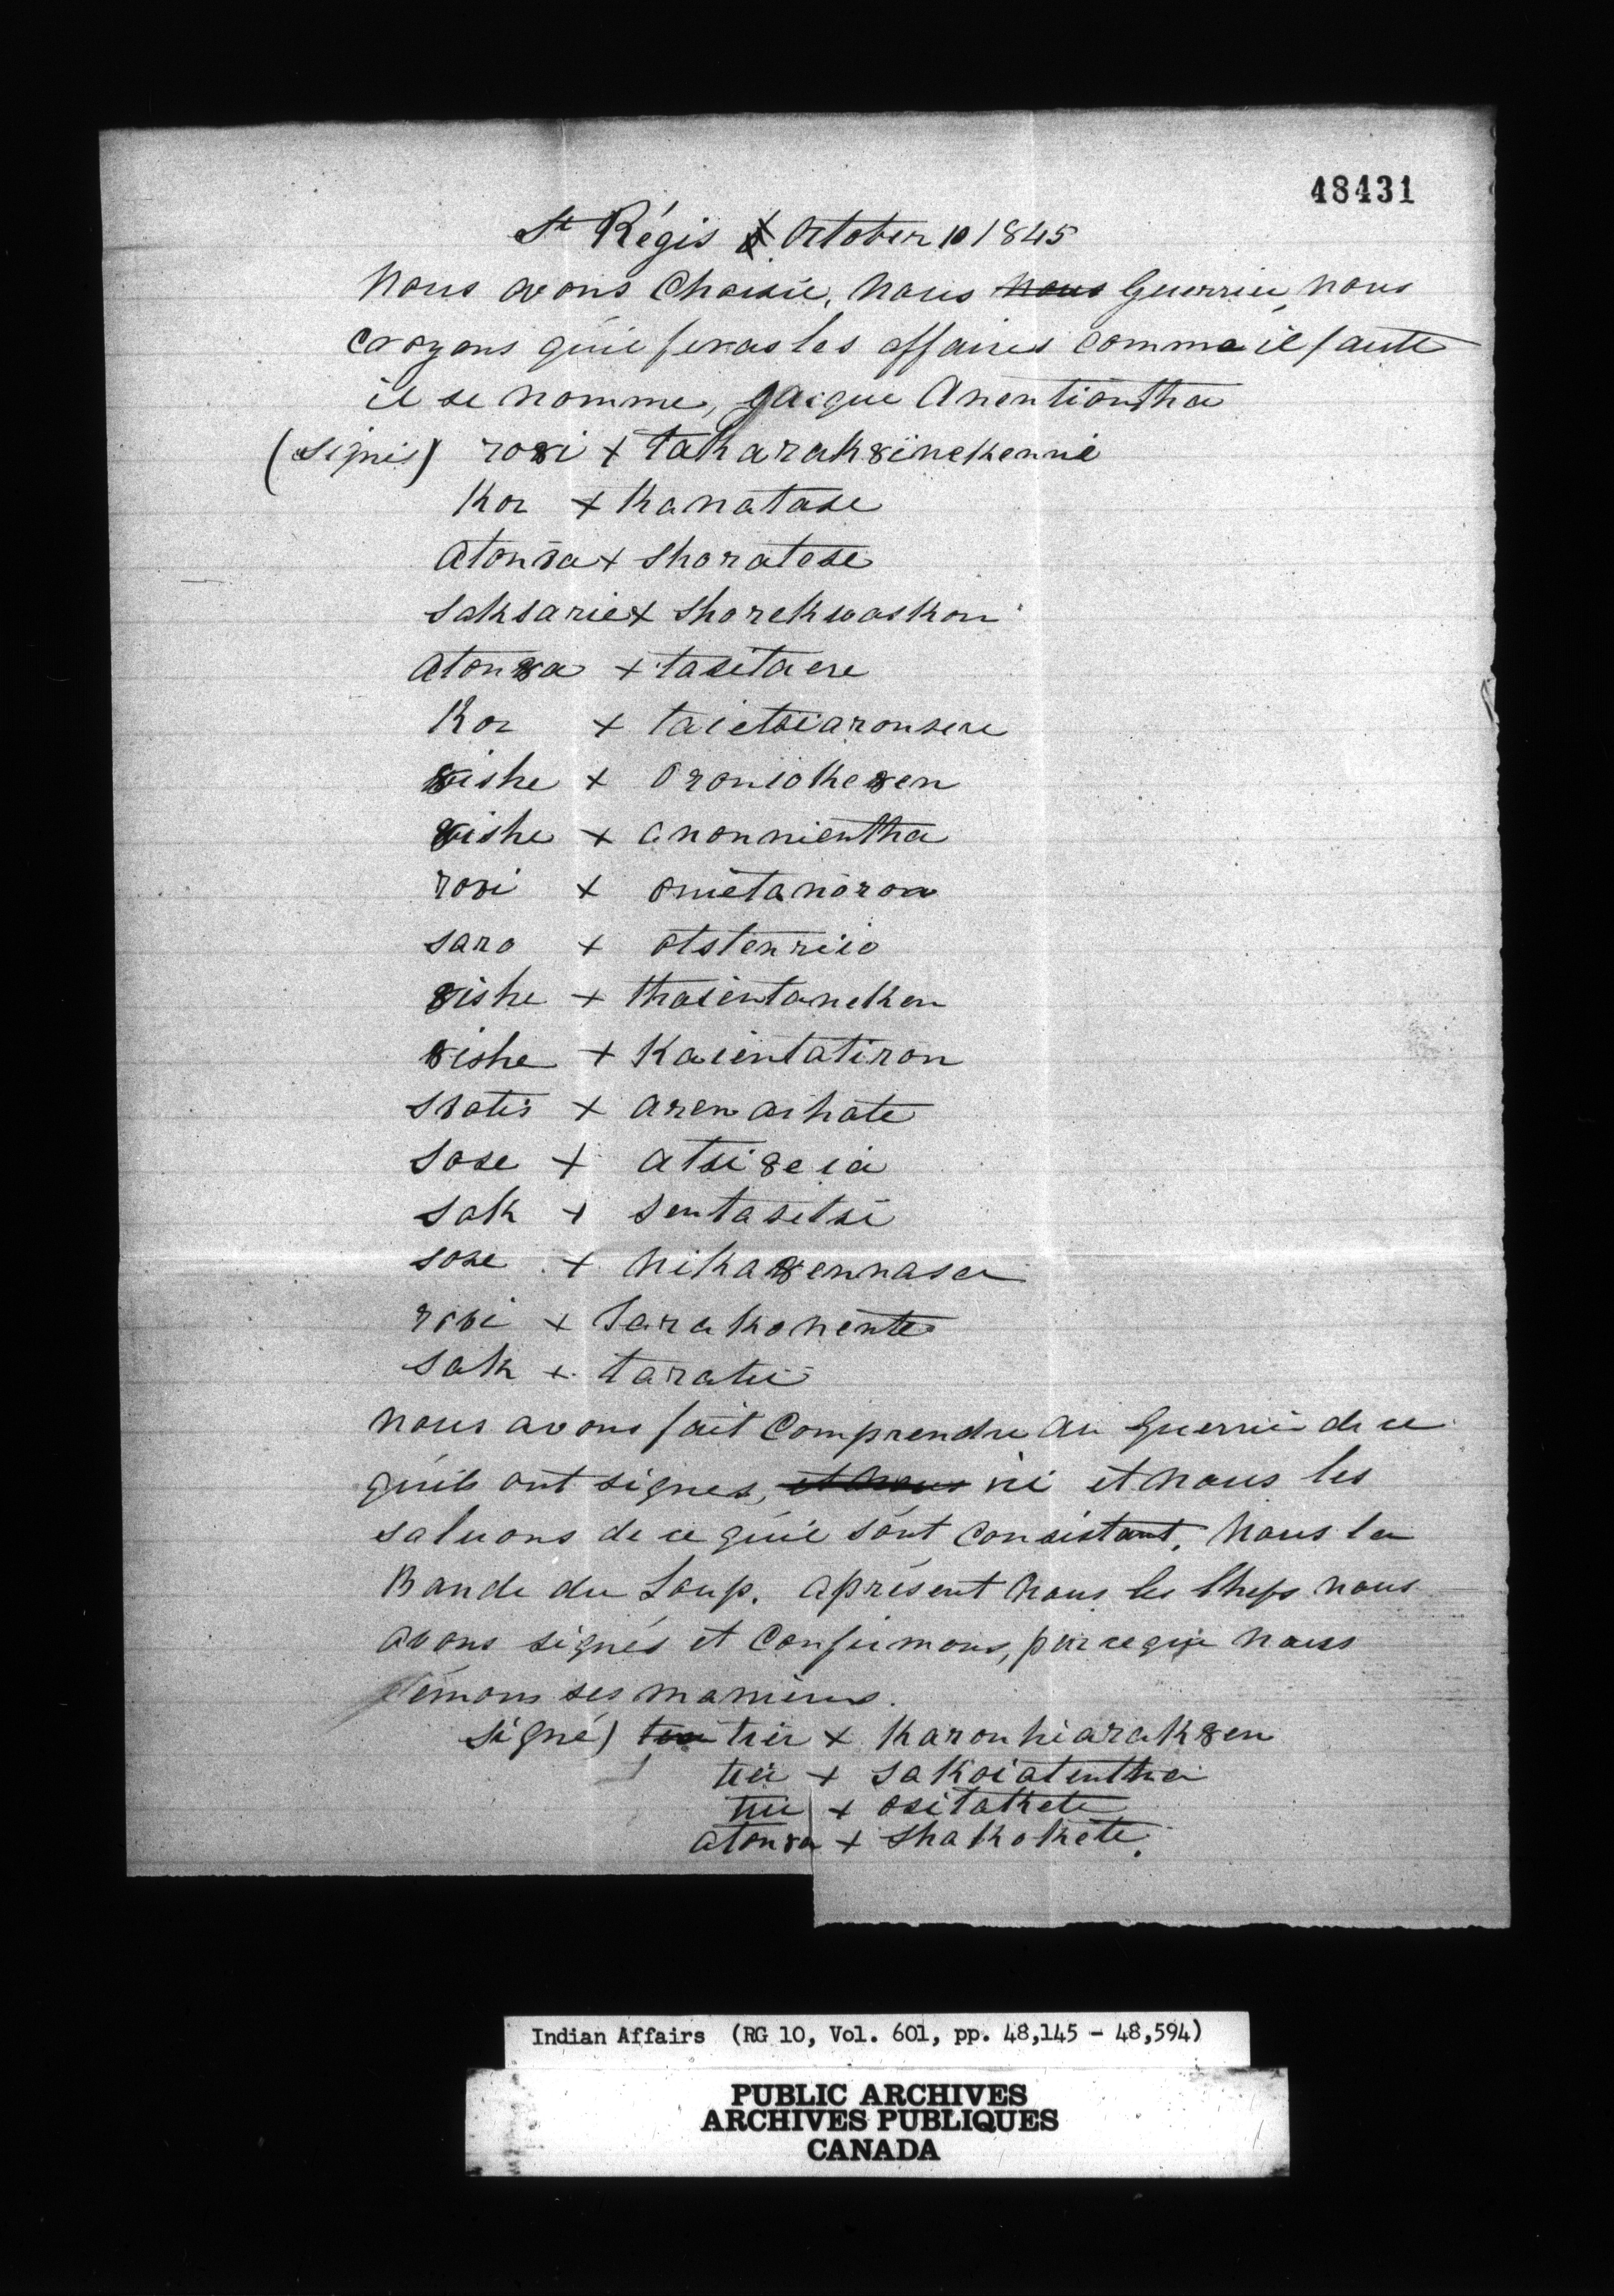 48431
St Régis October 10 1845
Nous avons Choisie, Nous nous Guerrie, nous
Croyons qúie feras les affaires comme il faute
il se nomme, Jacque Anentiontha
(Signé) ro8i + takarak8inekennie
Kor + Kanatase
Atonsa + Shoratose
Saksarie + Shorekwaskon
Aton8a + tasitaere
Kor + taietsiaronsere
8ishe + Oroniake8en
8ishe + anonnientha
rovi + onietanoron
saro + otstenriio
8ishe + thasentaneken
8ishe + Kaientatiron
Svatis + arenashate
Sose + atsi8eia
Sak + Sentasetsi
Sose + nika8ennasa
rovi + Sarakonente
Sak + taratie
nous avons fait Comprendre au Guerrie de ce
qúils ont signes, et nous ici et nous les
saluons de ce qúie sont Consistant. Nous la
Bande du Loup. Aprésent Nous les Chefs nous
avons signés et Confirmons, parceque nous
émons ses manieres.
Signé) tier + Karonhiarak8en
tier + Sakoiatentha
tier + ositakete
atonsa + Shakokete.
Indian Affairs (RG 10, Vol. 601, pp. 48,145 - 48,594)
PUBLIC ARCHIVES
ARCHIVES PUBLIQUES
CANADA